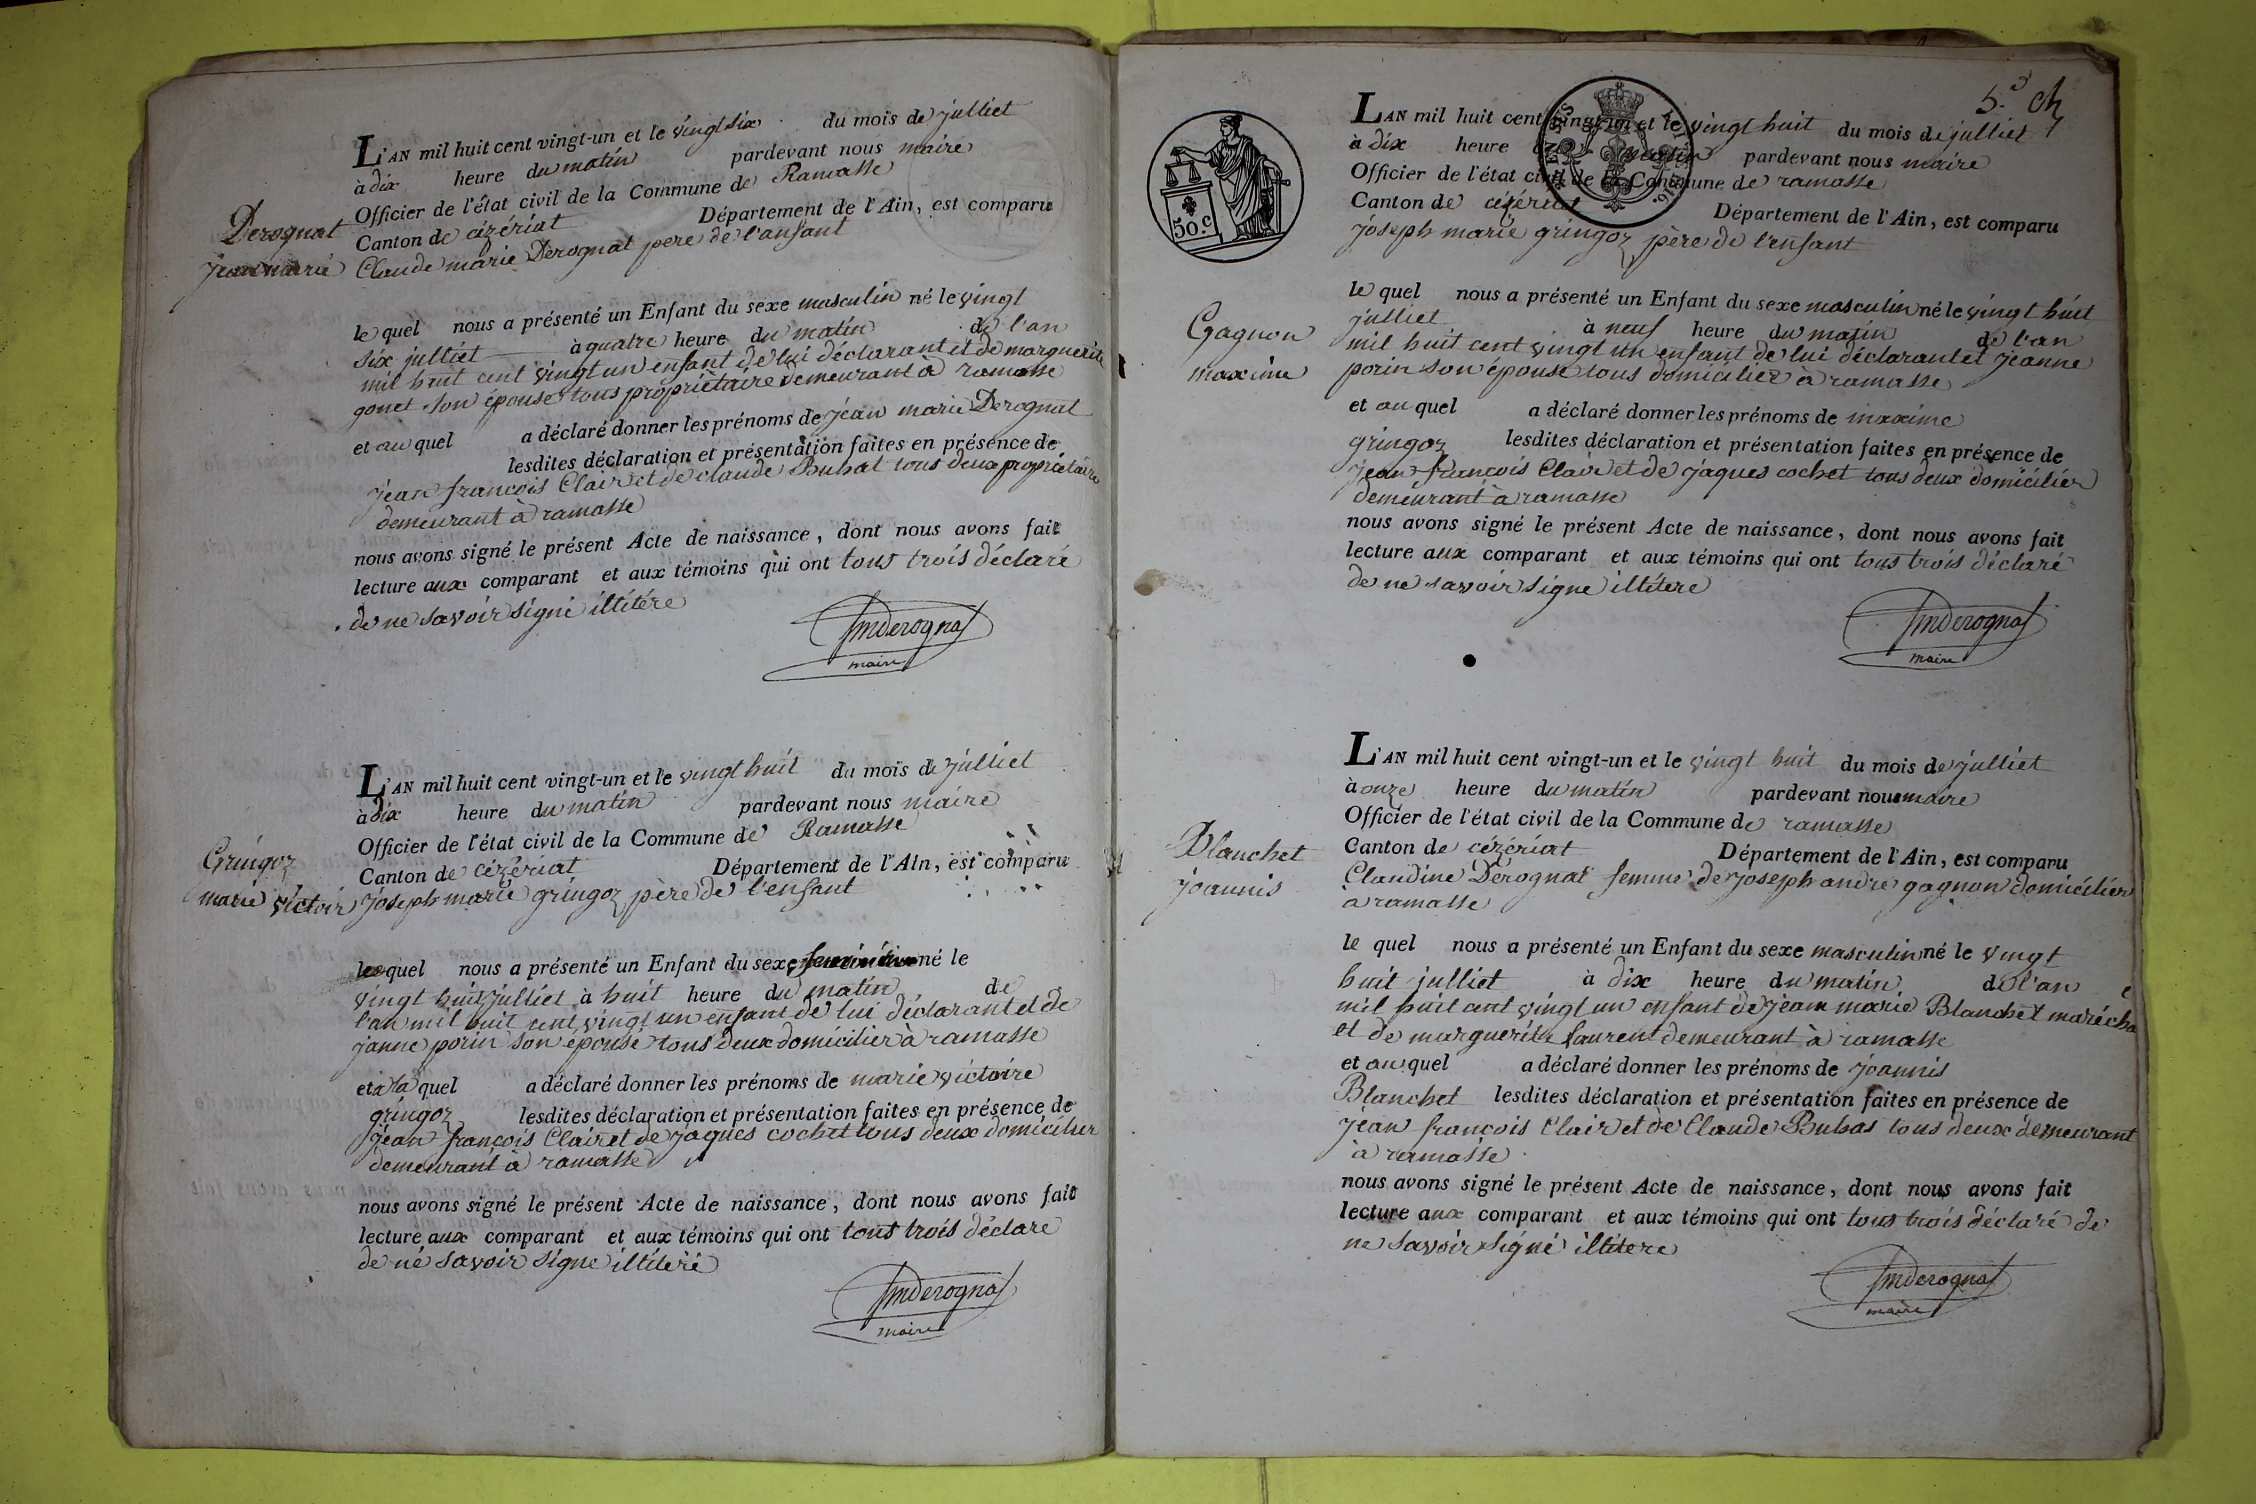 L'AN mil huit cent vingt-un et le vingt six du mois de julliet
à dix heure du matin pardevant nous maire
Officier de l'état civil de la Commune de Ramasse
Canton de cézériat Département de l'Ain, est comparu
Derognat
jean marie
Claude marie Derognat pere de l'anfant
le quel nous a présenté un Enfant du sexe masculin né le vingt
six julliet à quatre heure du matin de l'an
mil huit cent vingt un enfant de lui déclarant et de marguerite
gonet son épouse tous propriètaire demeurant à ramasse
et au quel a déclaré donner les prénoms de jean marie Derognat
lesdites déclaration et présentation faites en présence de
jean françois Clair et de claude Buhat tous deux propriétaire
demeurant à ramasse
nous avons signé le présent Acte de naissance, dont nous avons fait
lecture aux comparant et aux témoins qui ont tous trois déclaré
de ne savoir signé illitére
jmderognat
maire
L'AN mil huit cent vingt-un et le vingt huit du mois de julliet
à dix heure du matin pardevant nous maire
Officier de l'état civil de la Commune de Ramasse
Canton de cézériat Département de l'Ain, est comparu
Gringoz
marie victoir
joseph marie gringoz père de l'enfant
le quel nous a présenté un Enfant du sexe né le
vingt huit julliet à huit heure du matin de
l'an mil huit cent vingt un enfant de lui déclarant et de
janne porin son épouse tous deux domicilier à ramasse
et a la quel a déclaré donner les prénoms de marie victoire
gringoz lesdites déclaration et présentation faites en présence de
jean françois Clair et de jaques cochet tous deux domicilier
demeurant à ramasse
nous avons signé le présent Acte de naissance, dont nous avons fait
lecture aux comparant et aux témoins qui ont tous trois déclare
de né savoir signe illitéré
jmderognat
maire
5.e
L'AN mil huit cent vingt-un et le vingt huit du mois de julliet
à dix heure du matin pardevant nous maire
Officier de l'état civil de la Commune de ramasse
Canton de cézériat Département de l'Ain, est comparu
50.c
joseph marie gringoz père de l'enfant
Gagnon
maxime
le quel nous a présenté un Enfant du sexe masculin né le vingt huit
julliet à neuf heure du matin de l'an
mil huit cent vingt un enfant de lui déclarant et jeanne
porin son épouse tous domicilier à ramasse
et au quel a déclaré donner les prénoms de maxime
gringoz lesdites déclaration et présentation faites en présence de
jean françois Clair et de jaques cochet tous deux domicilier
demeurant à ramasse
nous avons signé le présent Acte de naissance, dont nous avons fait
lecture aux comparant et aux témoins qui ont tous trois déclaré
de ne savoir signe illitere
jmderognat
maire
L'AN mil huit cent vingt-un et le vingt huit du mois de julliet
à onze heure du matin pardevant nous maire
Officier de l'état civil de la Commune de ramasse
Canton de cézériat Département de l'Ain, est comparu
Blanchet
joannis
Claudine Derognat femme de joseph andre gagnon domicilier
à ramasse
le quel nous a présenté un Enfant du sexe masculin né le vingt
huit julliet à dix heure du matin de l'an
mil huit cent vingt un enfant de jean marie Blanchet marécha
et de marguerite laurent demeurant à ramasse
et au quel a déclaré donner les prénoms de joannis
Blanchet lesdites déclaration et présentation faites en présence de
jean françois Clair et de Claude Buhas tous deux demeurant
à ramasse
nous avons signé le présent Acte de naissance, dont nous avons fait
lecture aux comparant et aux témoins qui ont tous trois déclaré de
ne savoir signé illitere
jmderognat
maire